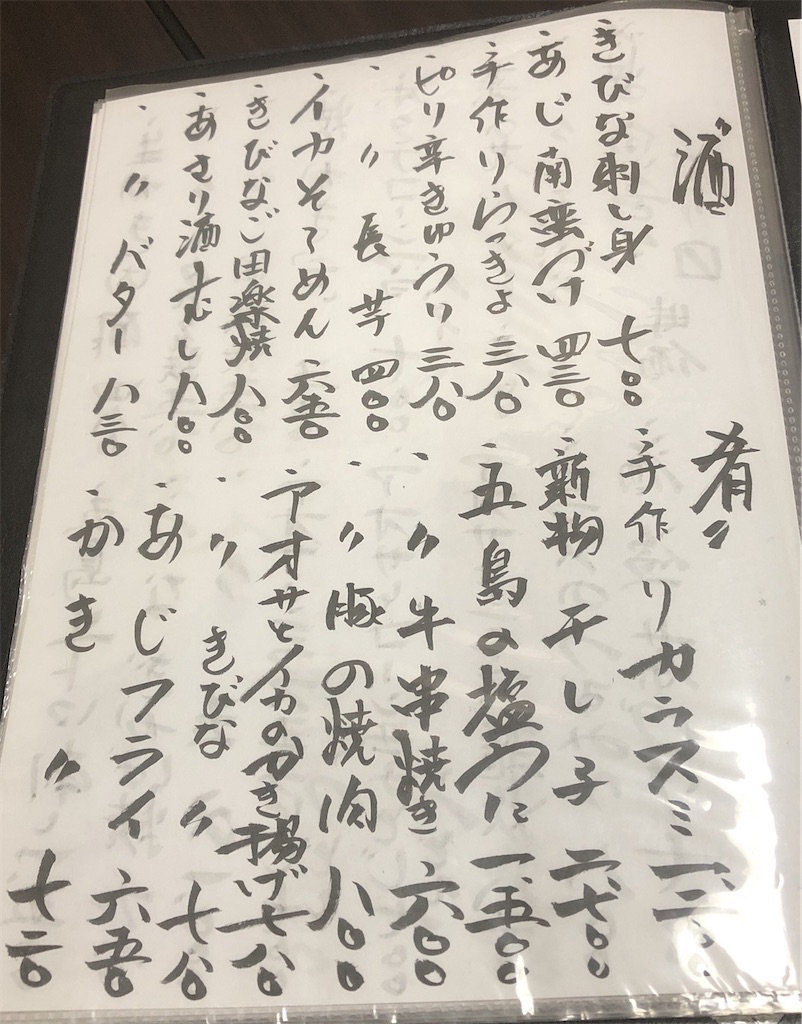 酒肴
きびな刺し身 七〇〇
あじ南蛮づけ 四三〇
手作りらっきょ 三八〇
ピリ辛きゅうり 三八〇
〃 長芋 四〇〇
イカそーめん 六五〇
きびなご田楽焼 八〇〇
あさり酒むし 八〇〇
〃 バター 八三〇
手作りカラスミ
新物干し子 二、七〇〇
五島の塩うに 一、五〇〇
〃 牛串焼き 六〇〇
〃 豚の焼肉 八〇〇
アオサとイカのかき揚げ 七八〇
〃 きびな 〃 七八〇
あじフライ 六五〇
かき 〃